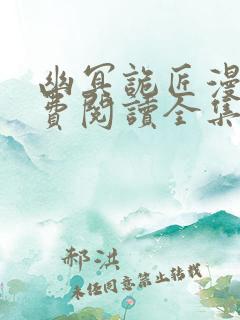 幽冥詭匠漫
費閱讀全集
郝洪
未经同意禁止转载